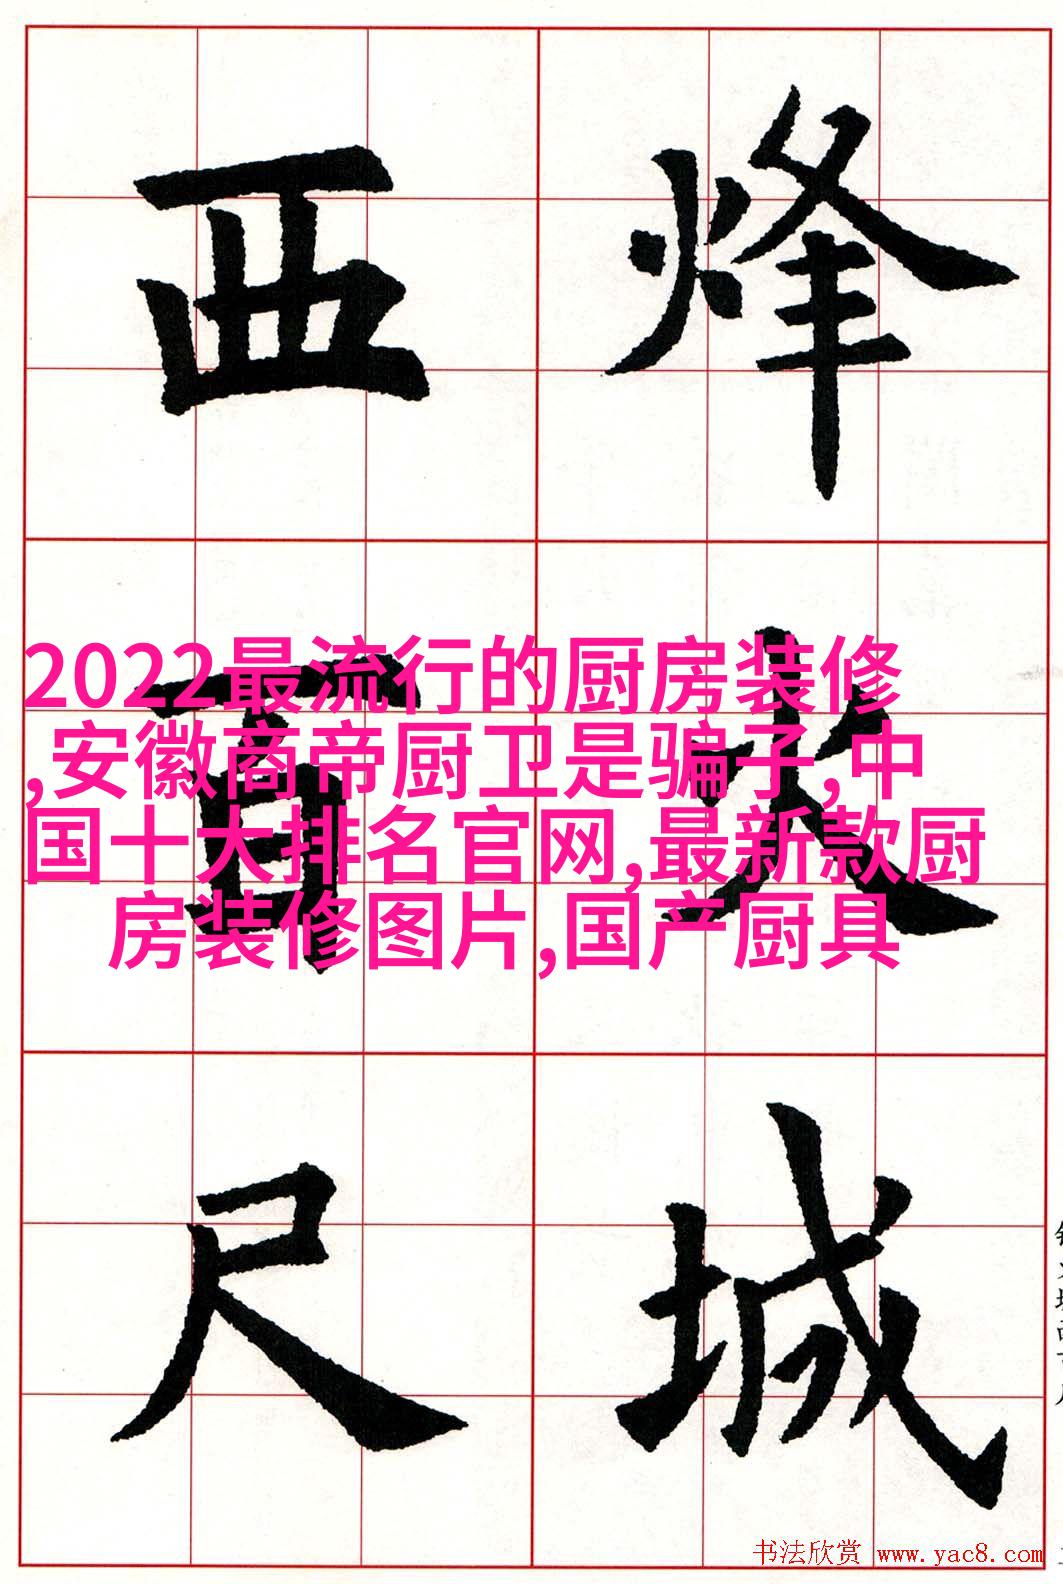 烽火城
西百尺
2022最流行的厨房装修
,安徽商帝厨卫是骗子,中
国十大排名官网,最新款厨
房装修图片,国产厨具
书法欣赏 www.yac8.com